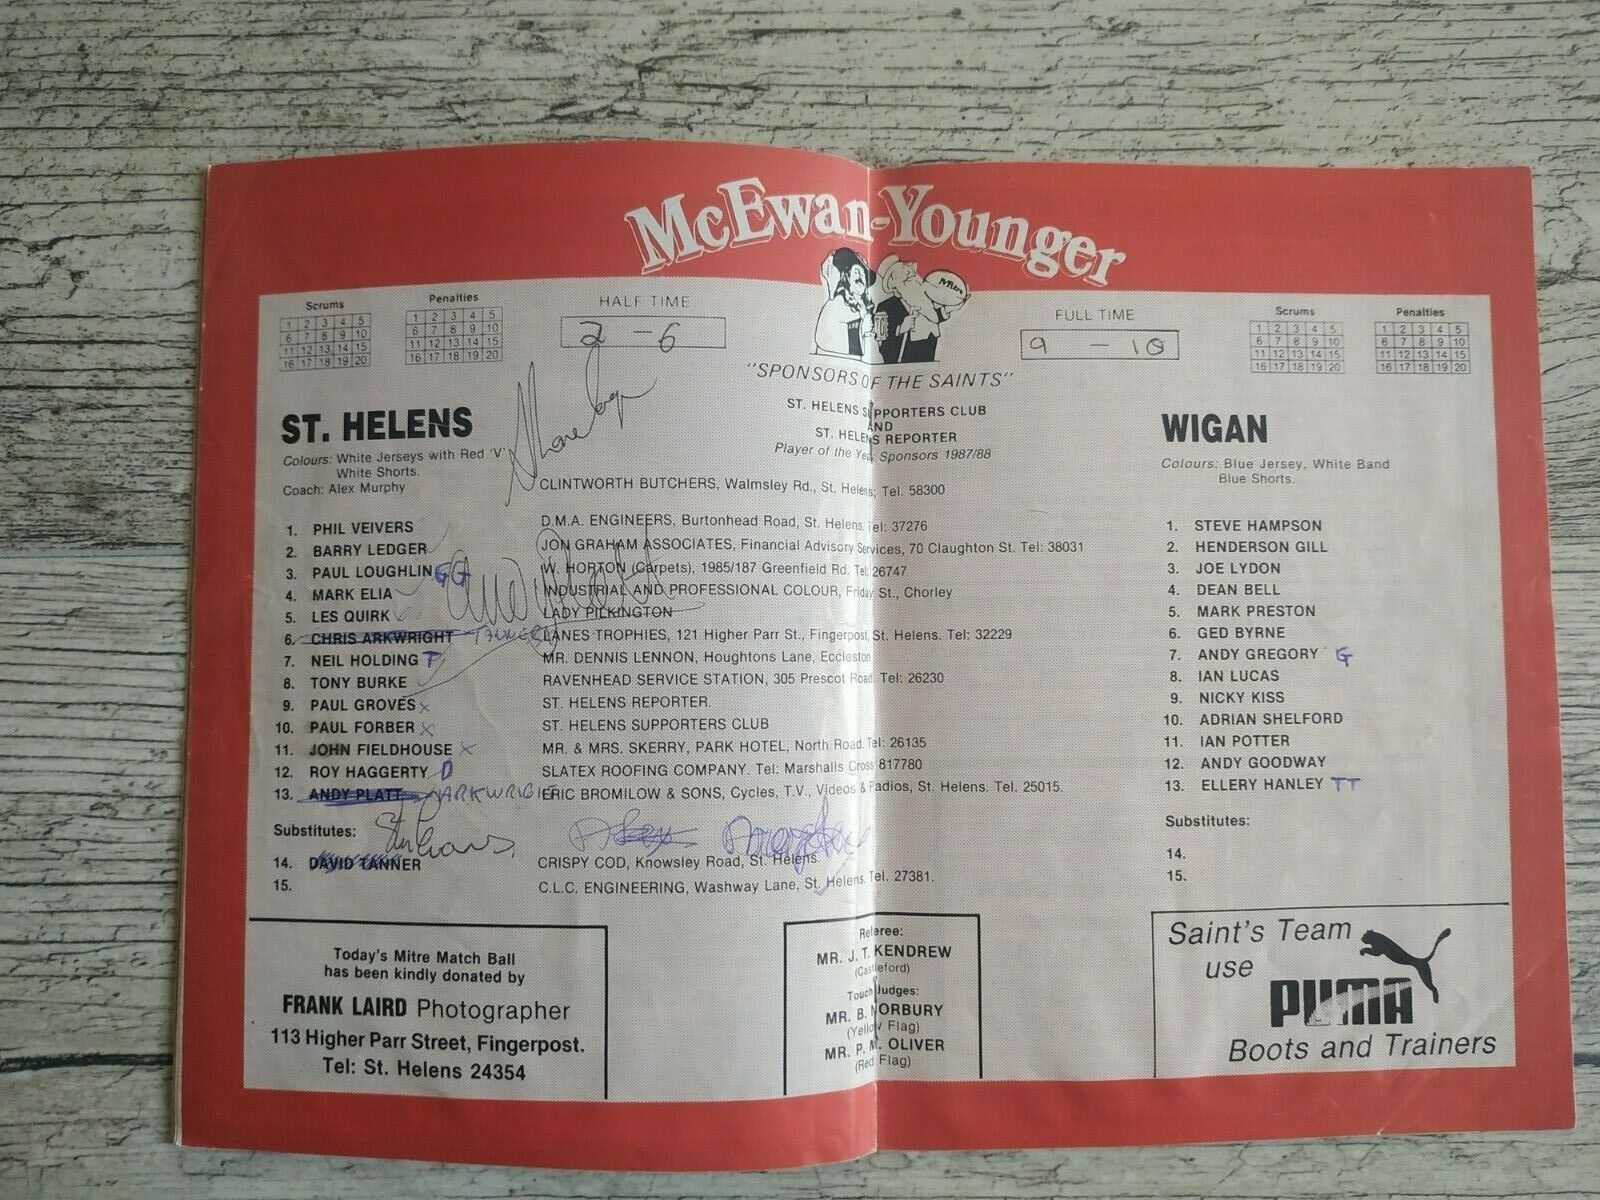 McEwan-Younger
Mitre
Scrums
1 2 3 4 5
6 7 8 9 10
11 12 13 14 15
16 17 18 19 20
Penalties
1 2 3 4 5
6 7 8 9 10
11 12 13 14 15
16 17 18 19 20
HALF TIME
2 - 6
FULL TIME
9 - 10
Scrums
1 2 3 4 5
6 7 8 9 10
11 12 13 14 15
16 17 18 19 20
Penalties
1 2 3 4 5
6 7 8 9 10
11 12 13 14 15
16 17 18 19 20
"SPONSORS OF THE SAINTS"
ST. HELENS SUPPORTERS CLUB
AND
ST. HELENS REPORTER
Player of the Year Sponsors 1987/88
ST. HELENS
Colours: White Jerseys with Red 'V'
White Shorts.
Coach: Alex Murphy
CLINTWORTH BUTCHERS, Walmsley Rd., St. Helens; Tel. 58300
1. PHIL VEIVERS D.M.A. ENGINEERS, Burtonhead Road, St. Helens. Tel: 37276
2. BARRY LEDGER JON GRAHAM ASSOCIATES, Financial Advisory Services, 70 Claughton St. Tel: 38031
3. PAUL LOUGHLIN GG W. HORTON (Carpets), 1985/187 Greenfield Rd. Tel: 26747
4. MARK ELIA INDUSTRIAL AND PROFESSIONAL COLOUR, Friday St., Chorley
5. LES QUIRK LADY PILKINGTON
6. CHRIS ARKWRIGHT TANNER LANES TROPHIES, 121 Higher Parr St., Fingerpost, St. Helens. Tel: 32229
7. NEIL HOLDING T MR. DENNIS LENNON, Houghtons Lane, Eccleston
8. TONY BURKE RAVENHEAD SERVICE STATION, 305 Prescot Road. Tel: 26230
9. PAUL GROVES x ST. HELENS REPORTER.
10. PAUL FORBER x ST. HELENS SUPPORTERS CLUB
11. JOHN FIELDHOUSE x MR. & MRS. SKERRY, PARK HOTEL, North Road. Tel: 26135
12. ROY HAGGERTY D SLATEX ROOFING COMPANY. Tel: Marshalls Cross 817780
13. ANDY PLATT ARKWRIGHT ERIC BROMILOW & SONS, Cycles, T.V., Videos & Radios, St. Helens. Tel. 25015.
Substitutes:
14. DAVID TANNER CRISPY COD, Knowsley Road, St. Helens.
15. C.L.C. ENGINEERING, Washway Lane, St. Helens. Tel. 27381.
WIGAN
Colours: Blue Jersey, White Band
Blue Shorts.
1. STEVE HAMPSON
2. HENDERSON GILL
3. JOE LYDON
4. DEAN BELL
5. MARK PRESTON
6. GED BYRNE
7. ANDY GREGORY G
8. IAN LUCAS
9. NICKY KISS
10. ADRIAN SHELFORD
11. IAN POTTER
12. ANDY GOODWAY
13. ELLERY HANLEY TT
Substitutes:
14.
15.
Today's Mitre Match Ball
has been kindly donated by
FRANK LAIRD Photographer
113 Higher Parr Street, Fingerpost.
Tel: St. Helens 24354
Referee:
MR. J. T. KENDREW
(Castleford)
Touch Judges:
MR. B. NORBURY
(Yellow Flag)
MR. P. M. OLIVER
(Red Flag)
Saint's Team
use
PUMA
Boots and Trainers